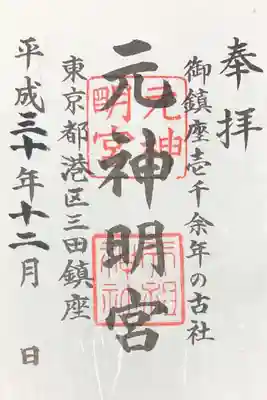 奉拝
御鎮座壱千余年の古社
元神明宮
東京都港区三田鎮座
平成三十年十二月 日
元神
明宮